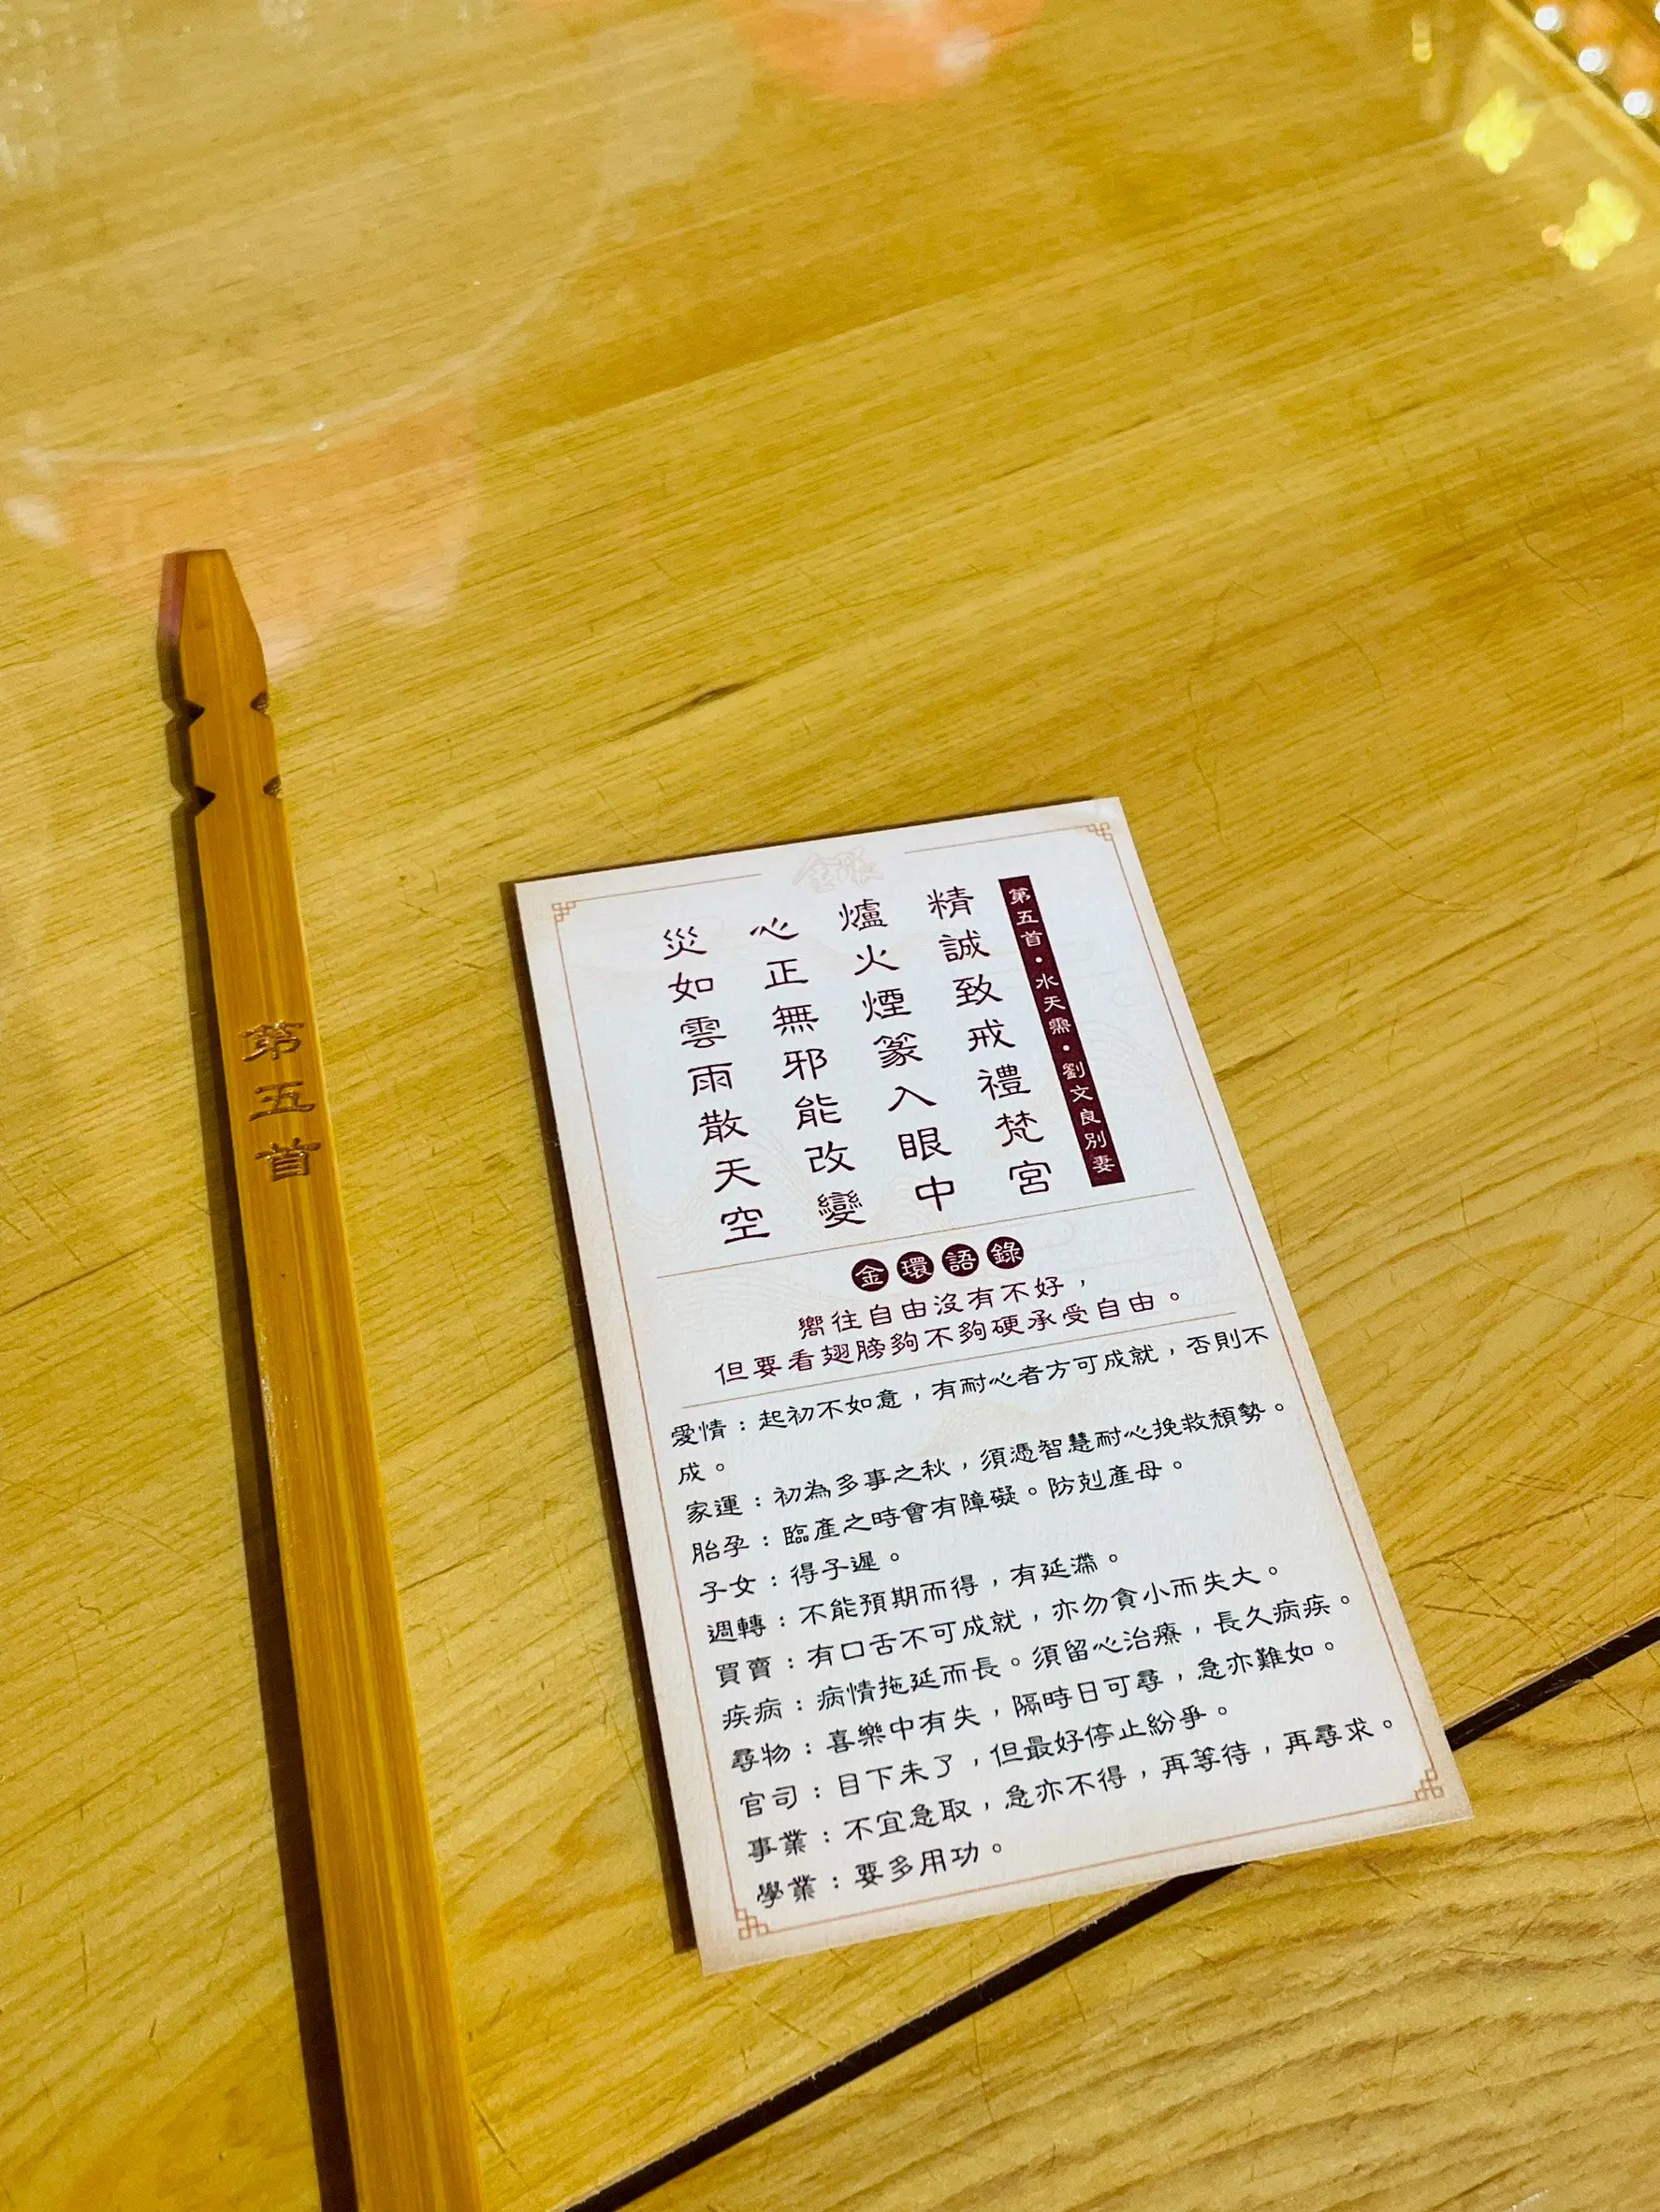 第五首
金張
第五首・水天需・劉文良別妻
精誠致戒禮梵宮
爐火煙篆入眼中
心正無邪能改變
災如雲雨散天空
金環語錄
嚮往自由沒有不好，
但要看翅膀夠不夠硬承受自由。
愛情：起初不如意，有耐心者方可成就，否則不
成。
家運：初為多事之秋，須憑智慧耐心挽救頹勢。
胎孕：臨產之時會有障礙。防剋產母。
子女：得子遲。
週轉：不能預期而得，有延滯。
買賣：有口舌不可成就，亦勿貪小而失大。
疾病：病情拖延而長。須留心治療，長久病疾。
尋物：喜樂中有失，隔時日可尋，急亦難如。
官司：目下未了，但最好停止紛爭。
事業：不宜急取，急亦不得，再等待，再尋求。
學業：要多用功。